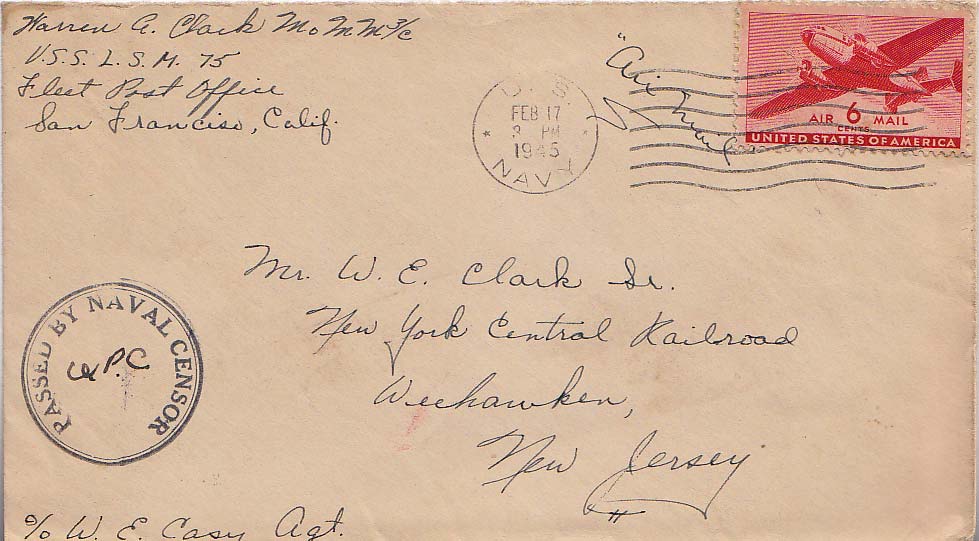 Warren A. Clark MoMM 3/c
U.S.S. L.S.M. 75
Fleet Post Office
San Franciso, Calif.
"Air Mail
U. S.
FEB 17
3 PM
1945
NAVY
AIR 6 MAIL
CENTS
UNITED STATES OF AMERICA
Mr. W. E. Clark Sr.
New York Central Railroad
Weehawken,
New Jersey
PASSED BY NAVAL CENSOR
P.C
c/o W. E. Casy Agt.